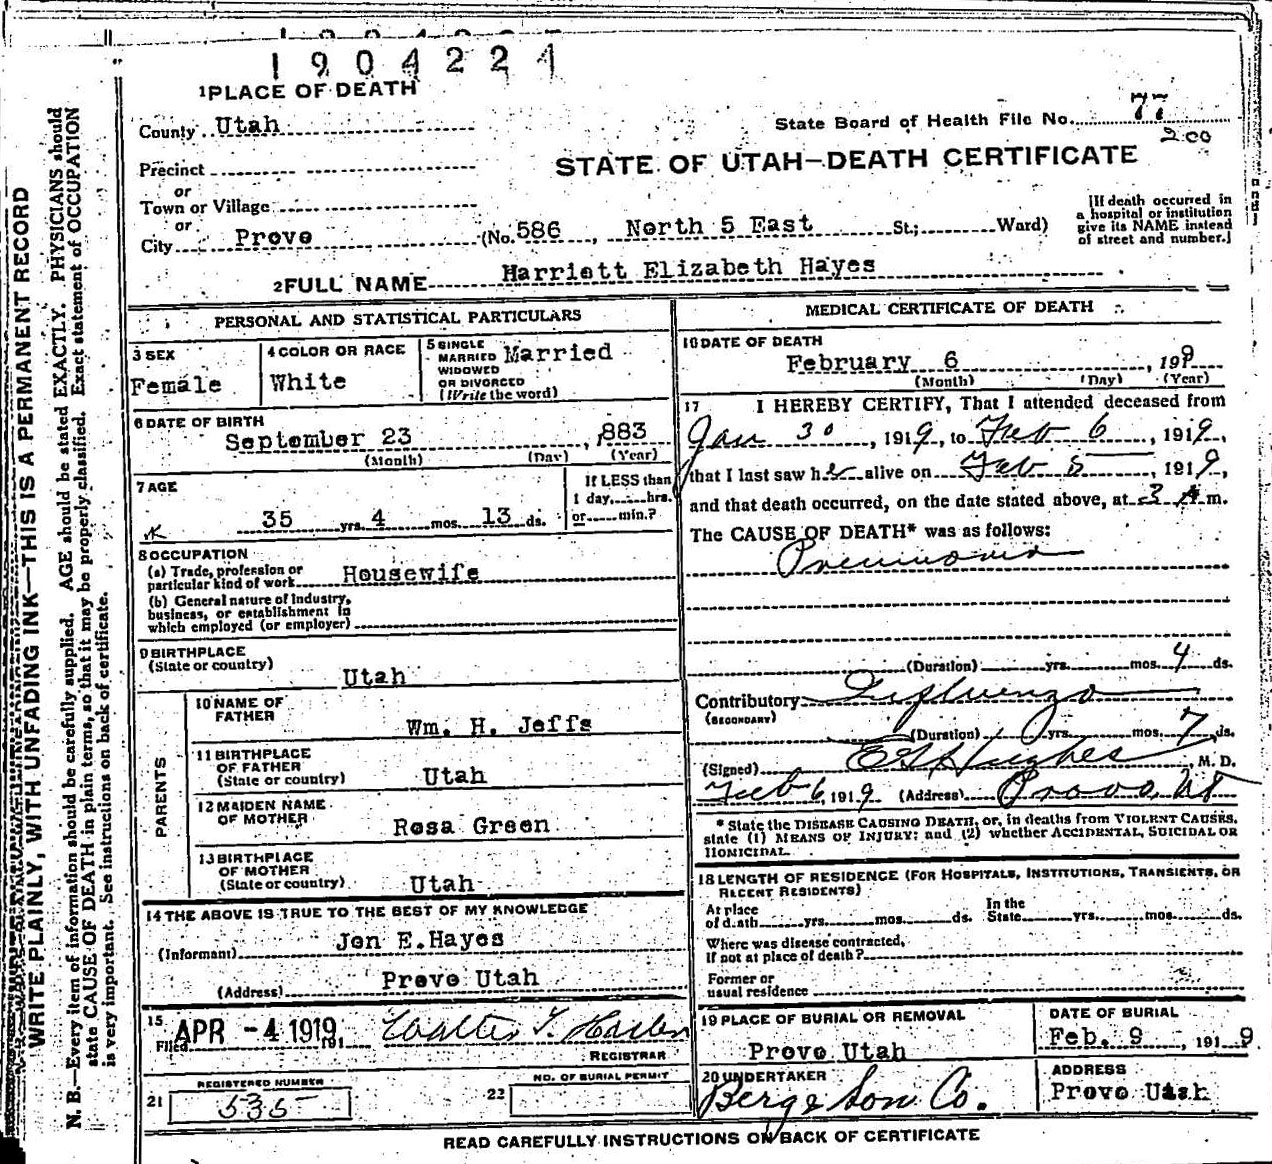 1904221
1 PLACE OF DEATH
County Utah
State Board of Health File No. 77
200
Precinct
STATE OF UTAH—DEATH CERTIFICATE
or
Town or Village
or
City Provo (No. 586, North 5 East St.; Ward)
[If death occurred in
a hospital or institution
give its NAME instead
of street and number.]
2 FULL NAME Harriett Elizabeth Hayes
PERSONAL AND STATISTICAL PARTICULARS
3 SEX
Female
4 COLOR OR RACE
White
5 SINGLE
MARRIED
WIDOWED
OR DIVORCED
(Write the word)
Married
6 DATE OF BIRTH
September 23, 1883
(Month) (Day) (Year)
7 AGE
35 yrs. 4 mos. 13 ds.
If LESS than
1 day, hrs.
or min.?
8 OCCUPATION
(a) Trade, profession or
particular kind of work Housewife
(b) General nature of industry,
business, or establishment in
which employed (or employer)
9 BIRTHPLACE
(State or country)
Utah
PARENTS
10 NAME OF
FATHER
Wm. H. Jeffs
11 BIRTHPLACE
OF FATHER
(State or country) Utah
12 MAIDEN NAME
OF MOTHER
Rosa Green
13 BIRTHPLACE
OF MOTHER
(State or country) Utah
14 THE ABOVE IS TRUE TO THE BEST OF MY KNOWLEDGE
(Informant) Jon E. Hayes
(Address) Provo Utah
15
Filed APR -4 1919, 191 Walter T. Hasler
REGISTRAR
REGISTERED NUMBER
21 535
NO. OF BURIAL PERMIT
22
MEDICAL CERTIFICATE OF DEATH
16 DATE OF DEATH
February 6, 1919
(Month) (Day) (Year)
17 I HEREBY CERTIFY, That I attended deceased from
Jan 30, 1919, to Feb 6, 1919,
that I last saw her alive on Feb 5, 1919,
and that death occurred, on the date stated above, at 3 A m.
The CAUSE OF DEATH* was as follows:
Pneumonia
(Duration) yrs. mos. 4 ds.
Contributory Influenza
(SECONDARY)
(Duration) yrs. mos. 7 ds.
(Signed) Hughes, M. D.
Feb 6, 1919 (Address) Provo, Ut
* State the DISEASE CAUSING DEATH, or, in deaths from VIOLENT CAUSES,
state (1) MEANS OF INJURY; and (2) whether ACCIDENTAL, SUICIDAL OR
HOMICIDAL.
18 LENGTH OF RESIDENCE (FOR HOSPITALS, INSTITUTIONS, TRANSIENTS, OR
RECENT RESIDENTS)
At place
of death yrs. mos. ds.
In the
State yrs. mos. ds.
Where was disease contracted,
if not at place of death?
Former or
usual residence
19 PLACE OF BURIAL OR REMOVAL
Provo Utah
DATE OF BURIAL
Feb. 9, 1919
20 UNDERTAKER
Berg & Son Co.
ADDRESS
Provo Utah
READ CAREFULLY INSTRUCTIONS ON BACK OF CERTIFICATE
WRITE PLAINLY, WITH UNFADING INK—THIS IS A PERMANENT RECORD
N. B.—Every item of information should be carefully supplied. AGE should be stated EXACTLY. PHYSICIANS should
state CAUSE OF DEATH in plain terms, so that it may be properly classified. Exact statement of OCCUPATION
is very important. See instructions on back of certificate.